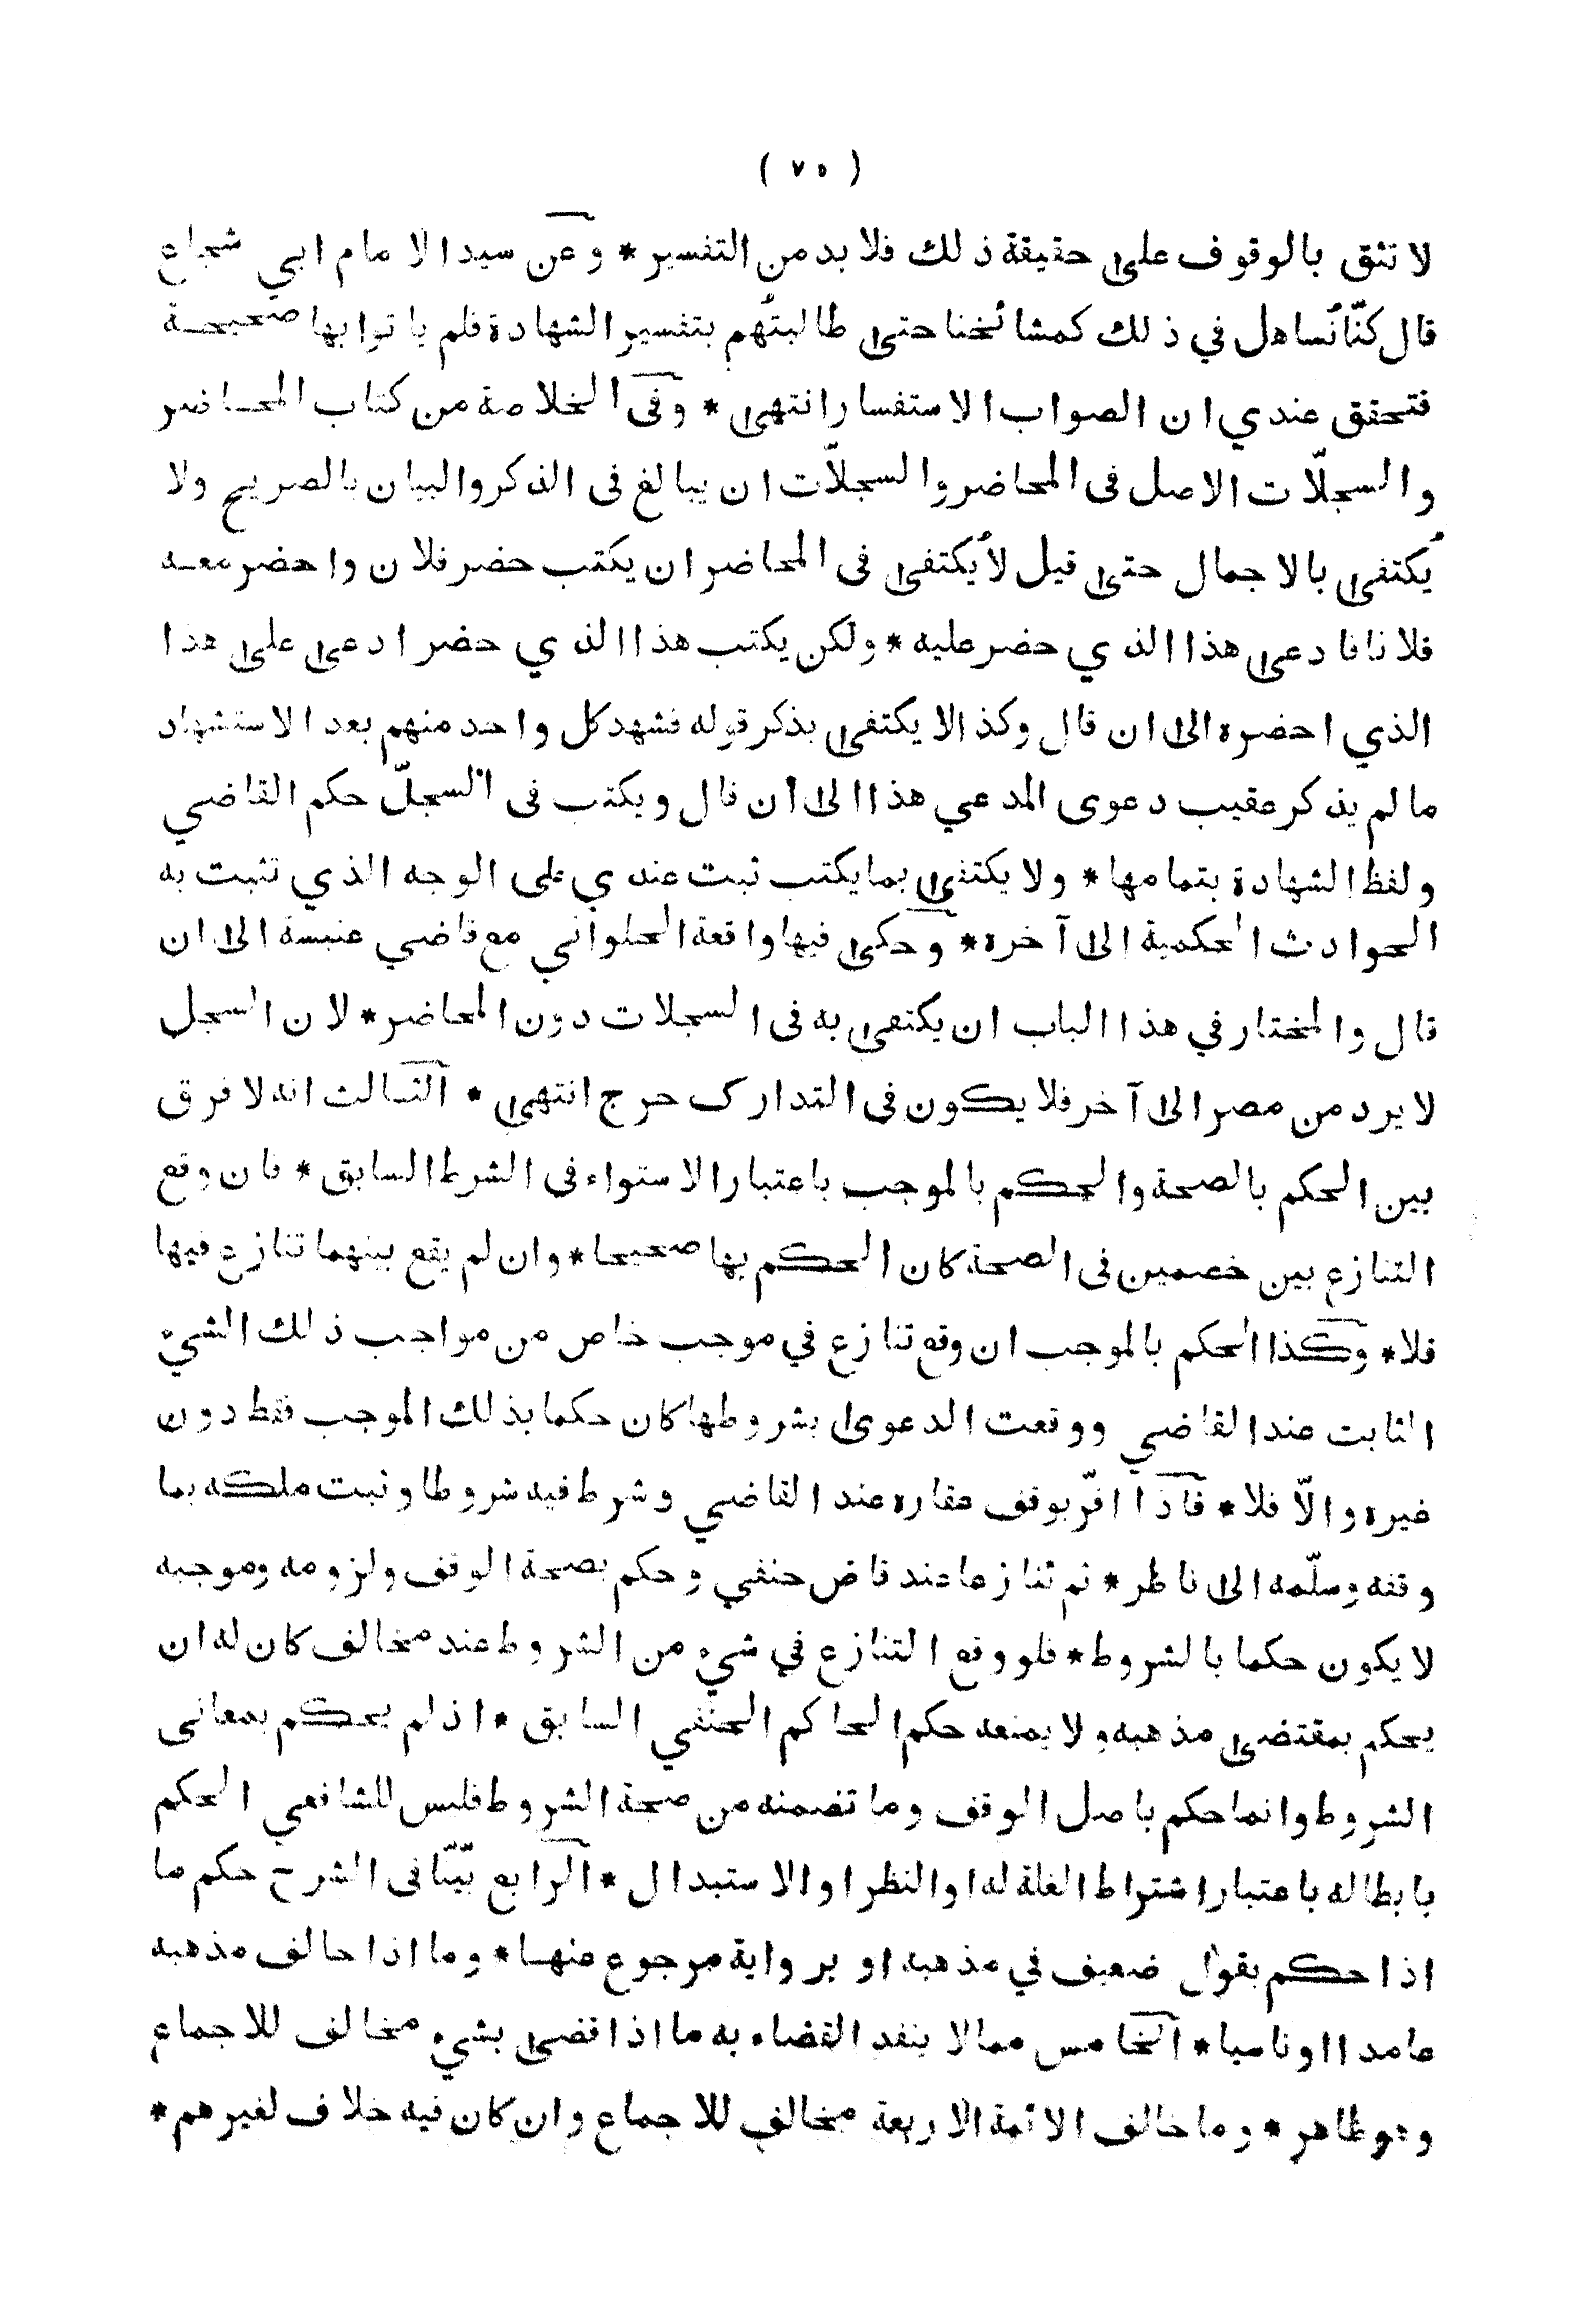 ( ٧٥ )
لا تثق بالوقوف على حقيقة ذلك فلا بد من التفسير * وعن سيد الامام ابي شجاع
قال كنّا نُساهل في ذلك كمشائخنا حتى طالبتُهم بتفسير الشهادة فلم ياتوا بها صحيحة
فتحقق عندي ان الصواب الاستفسار انتهى * وفى الخلاصة من كتاب المحاضر
والسجلّات الاصل فى المحاضر والسجلّات ان يبالغ فى الذكر والبيان بالصريح ولا
يُكتفى بالاجمال حتى قيل لا يُكتفى فى المحاضر ان يكتب حضر فلان واحضر معه
فلانا فادعى هذا الذي حضر عليه * ولكن يكتب هذا الذي حضر ادعى على هذا
الذي احضره الى ان قال وكذا لا يكتفى بذكر قوله فشهد كل واحد منهم بعد الاستشهاد
ما لم يذكر عقيب دعوى المدعي هذا الى أن قال ويكتب فى السجلّ حكم القاضي
ولفظ الشهادة بتمامها * ولا يكتفى بما يكتب ثبت عندي على الوجه الذي تثبت به
الحوادث الحكمية الى آخره * وحكى فيها واقعة الحلواني مع قاضي عنبسة الى ان
قال والمختار في هذا الباب ان يكتفى به فى السجلات دون المحاضر * لان السجل
لا يرد من مصر الى آخر فلا يكون فى التدارك حرج انتهى * الثالث انه لا فرق
بين الحكم بالصحة والحكم بالموجب باعتبار الاستواء فى الشرط السابق * فان وقع
التنازع بين خصمين فى الصحة كان الحكم بها صحيحا * وان لم يقع بينهما تنازع فيها
فلا * وكذا الحكم بالموجب ان وقع تنازع في موجب خاص من مواجب ذلك الشيء
الثابت عند القاضي ووقعت الدعوى بشروطها كان حكما بذلك الموجب فقط دون
غيره والّا فلا * فاذا اقرّ بوقف عقاره عند القاضي وشرط فيه شروطا وثبت ملكه بما
وقفه وسلّمه الى ناظر * ثم تنازعا عند قاض حنفي وحكم بصحة الوقف ولزومه وموجبه
لا يكون حكما بالشروط * فلو وقع التنازع في شيء من الشروط عند مخالف كان له ان
يحكم بمقتضى مذهبه ولا يمنعه حكم الحاكم الحنفي السابق * اذ لم يحكم بمعانى
الشروط وانما حكم باصل الوقف وما تضمنه من صحة الشروط فليس للشافعي الحكم
بابطاله باعتبار اشتراط الغلة له او النظر او الاستبدال * الرابع بيّنّا فى الشرح حكم ما
اذا حكم بقول ضعيف في مذهبه او برواية مرجوع عنها * وما اذا خالف مذهبه
عامدا او ناسيا * الخامس مما لا ينفذ القضاء به ما اذا قضى بشيء مخالف للاجماع
وهو ظاهر * وما خالف الائمة الاربعة مخالف للاجماع وان كان فيه خلاف لغيرهم *